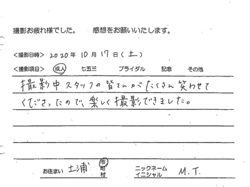 撮影お疲れ様でした。 感想をお願いいたします。
<撮影日時> 2020年10月17日(土)
<撮影項目> 成人 七五三 ブライダル 記念 その他
撮影中スタッフの皆さんがたくさん笑わせて
くださったので、楽しく撮影できました。
お住まい 土浦 市 町 村 ニックネーム イニシャル M.T.